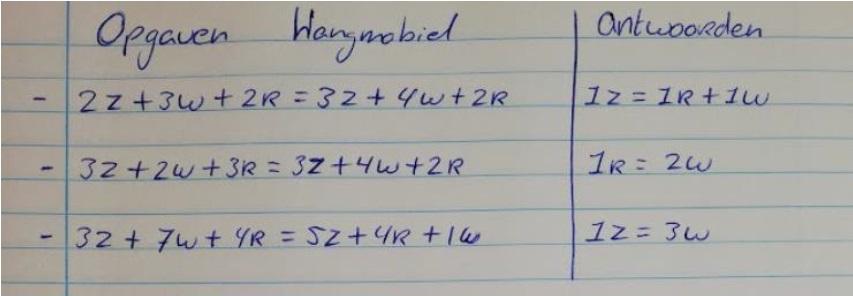 Opgaven Hangmobiel Antwoorden
- 2z+3w+2R = 3z+4w+2R 1z = 1R+1w
- 3z+2w+3R = 3z+4w+2R 1R = 2w
- 3z+7w+4R = 5z+4R+1w 1z = 3w